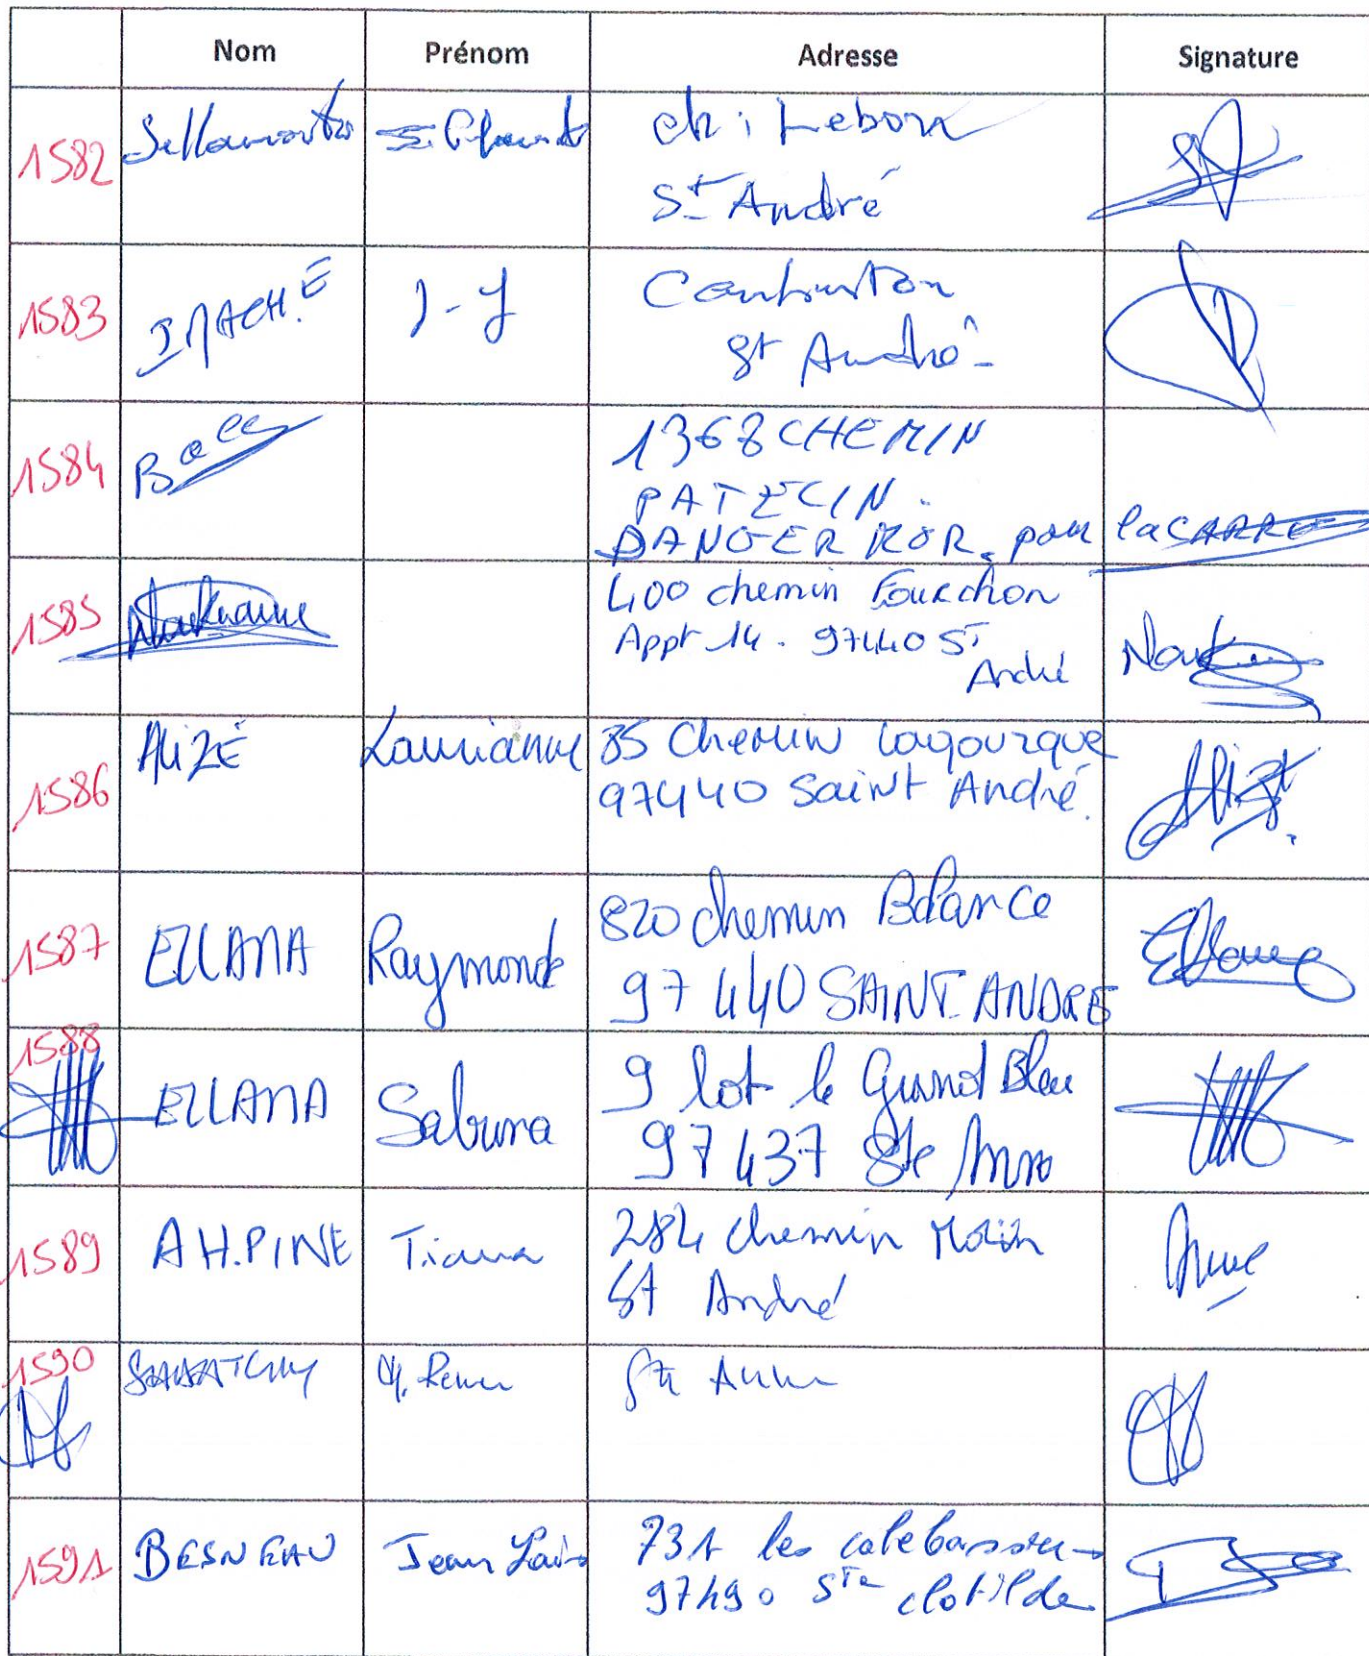 Nom Prénom Adresse Signature
1582 ch: Lebon
St André
1583 J-Y
St André
1584 1368 CHEMIN
PATECIN.
DANGER pour la CARRE
1585 400 chemin Fourchon
Appt 14. 97440 St
André
1586 AliZE Laurianne 85 Chemin Lagourgue
97440 Saint André.
1587 ELLAMA Raymonde 820 chemin Balance
97440 SAINT-ANDRE
1588 ELLAMA Sabrina 9 lot le Grand Bleu
97437 Ste Anne
1589 AH.PINE Tiana 284 chemin Morin
St André
1590 Ste Anne
1591 BESNEAU Jean Louis 731 les calebassiers
97490 Ste clotilde